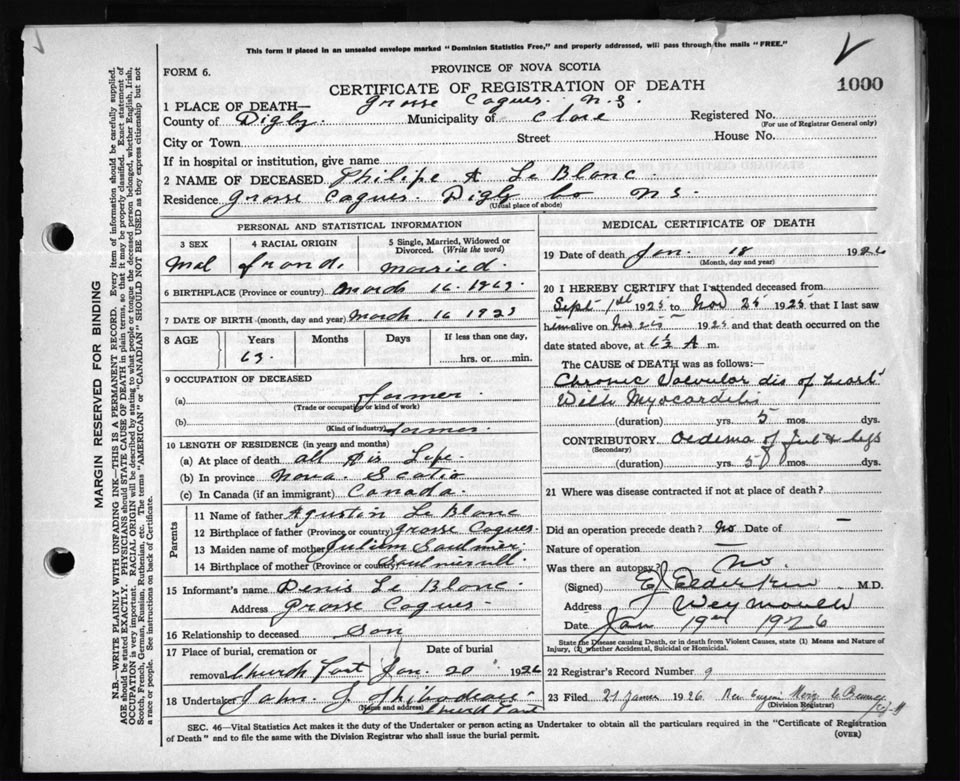 This form if placed in an unsealed envelope marked "Dominion Statistics Free," and properly addressed, will pass through the mails "FREE."
FORM 6.
PROVINCE OF NOVA SCOTIA
CERTIFICATE OF REGISTRATION OF DEATH
1000
1 PLACE OF DEATH— Grosse Coques. N.S.
County of Digby. Municipality of Clare Registered No.
(For use of Registrar General only)
City or Town Street House No.
If in hospital or institution, give name
2 NAME OF DECEASED Philipe A Le Blanc.
Residence Grosse Coques. Digby Co N S.
(Usual place of abode)
PERSONAL AND STATISTICAL INFORMATION
3 SEX 4 RACIAL ORIGIN 5 Single, Married, Widowed or Divorced. (Write the word)
Mal Married.
6 BIRTHPLACE (Province or country) March 16. 1863.
7 DATE OF BIRTH (month, day and year) March. 16
8 AGE Years Months Days If less than one day,
63. hrs. or min.
9 OCCUPATION OF DECEASED
(a) farmer.
(Trade or occupation or kind of work)
(b) farmer.
(Kind of industry)
10 LENGTH OF RESIDENCE (in years and months)
(a) At place of death all His Life.
(b) In province Nova. Scotia
(c) In Canada (if an immigrant) Canada.
Parents
11 Name of father Agustin Le Blanc
12 Birthplace of father (Province or country) Grosse Coques.
13 Maiden name of mother
14 Birthplace of mother (Province or country)
15 Informant's name Denis Le Blanc
Address Grosse Coques.
16 Relationship to deceased Son
17 Place of burial, cremation or removal Date of burial
Church Point Jan. 20 1926
18 Undertaker John. J. Thibodeau
(Name and address) Church Point
MEDICAL CERTIFICATE OF DEATH
19 Date of death Jan. 18 1926
(Month, day and year)
20 I HEREBY CERTIFY that I attended deceased from
Sept 1st 1925 to Nov 25 1925 that I last saw
him alive on Nov 25 1925 and that death occurred on the
date stated above, at 6½ A m.
The CAUSE of DEATH was as follows:
Chronic Valvular dis of heart
With Myocarditis
(duration) yrs. 5 mos. dys.
CONTRIBUTORY Oedema of feet & legs
(Secondary)
(duration) yrs. 5 mos. dys.
21 Where was disease contracted if not at place of death?
Did an operation precede death? No Date of —
Nature of operation —
Was there an autopsy? No.
(Signed) E. Elderkin M.D.
Address Weymouth
Date Jan 19th 1926
State the Disease causing Death, or in death from Violent Causes, state (1) Means and Nature of Injury, (2) whether Accidental, Suicidal or Homicidal.
22 Registrar's Record Number 9
23 Filed 21 1926 Rev. Eugène
(Division Registrar)
SEC. 46—Vital Statistics Act makes it the duty of the Undertaker or person acting as Undertaker to obtain all the particulars required in the "Certificate of Registration of Death" and to file the same with the Division Registrar who shall issue the burial permit.
(OVER)
MARGIN RESERVED FOR BINDING
N.B.—WRITE PLAINLY WITH UNFADING INK—THIS IS A PERMANENT RECORD. Every item of information should be carefully supplied.
AGE should be stated EXACTLY. PHYSICIANS should STATE CAUSE OF DEATH in plain terms, so that it may be properly classified. Exact statement of
OCCUPATION is very important. RACIAL ORIGIN will be described by stating to what people or tongue the deceased person belonged, whether English, Irish,
Scotch, French, German, Russian, Ruthenian, etc. The terms "AMERICAN" or "CANADIAN" SHOULD NOT BE USED as they express citizenship but not
a race or people. See instructions on back of Certificate.